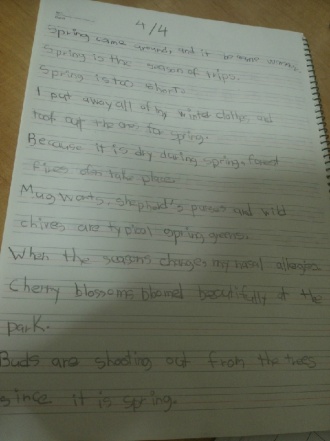 4/4
Spring came around, and it became warmer.
Spring is the season of trips.
Spring is too short.
I put away all of my winter clothes, and
took out the ones for spring.
Because it is dry during spring, forest
fires often take place.
Mugworts, shepherd's purses and wild
chives are typical spring greens.
When the seasons changes, my nasal allergies
Cherry blossoms bloomed beautifully at the
park.
Buds are shooting out from the trees
since it is spring.